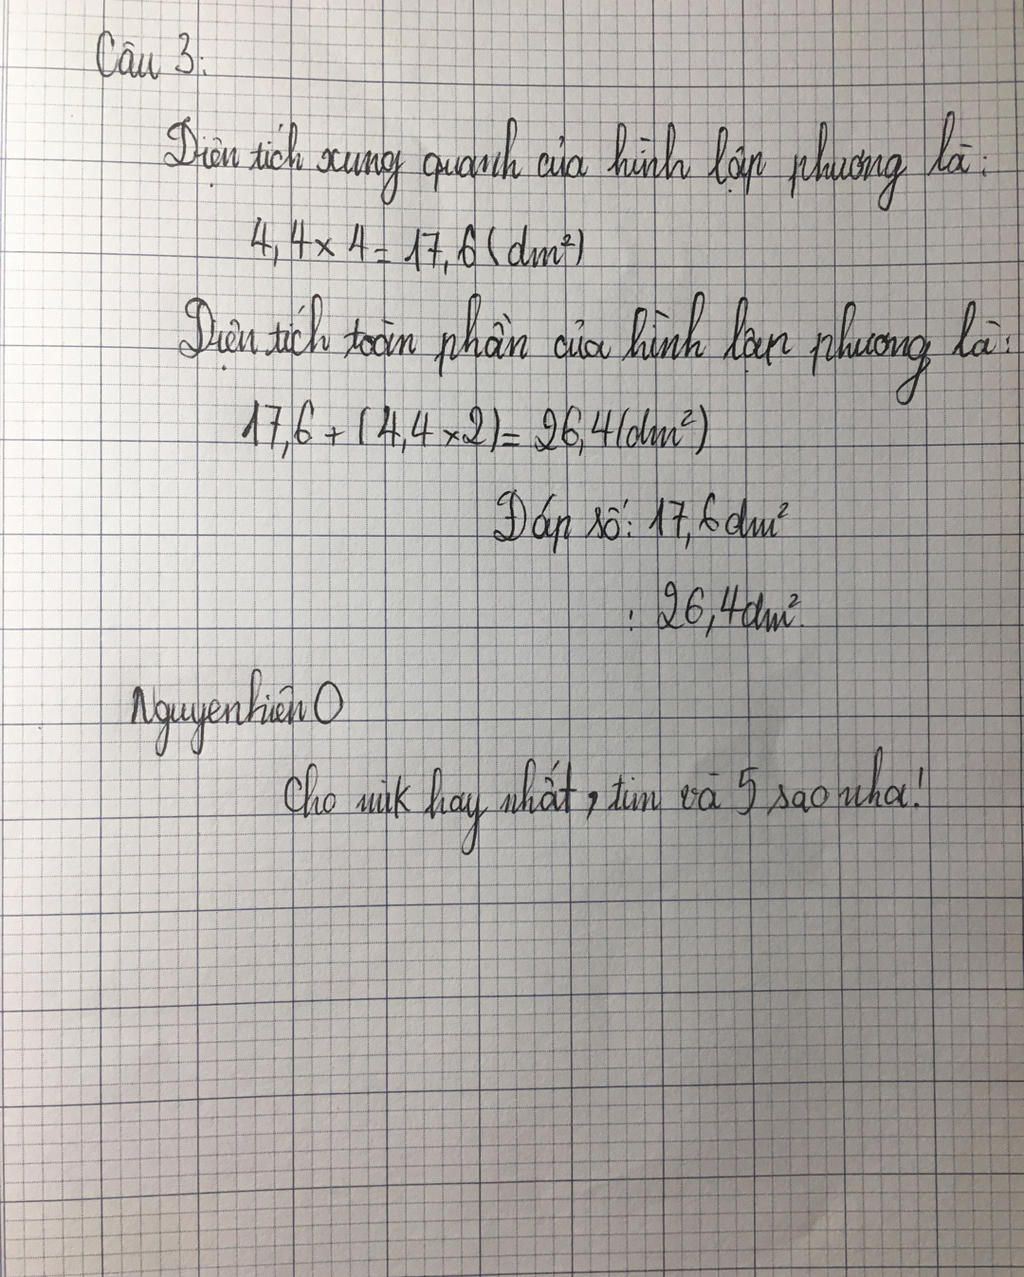 Câu 3:
Diện tích xung quanh của hình lập phương là:
4,4 x 4 = 17,6 (dm²)
Diện tích toàn phần của hình lập phương là:
17,6 + (4,4 x 2) = 26,4 (dm²)
Đáp số: 17,6 dm²
: 26,4 dm².
Nguyenhiền0
Cho mik hay nhất, tim và 5 sao nha!